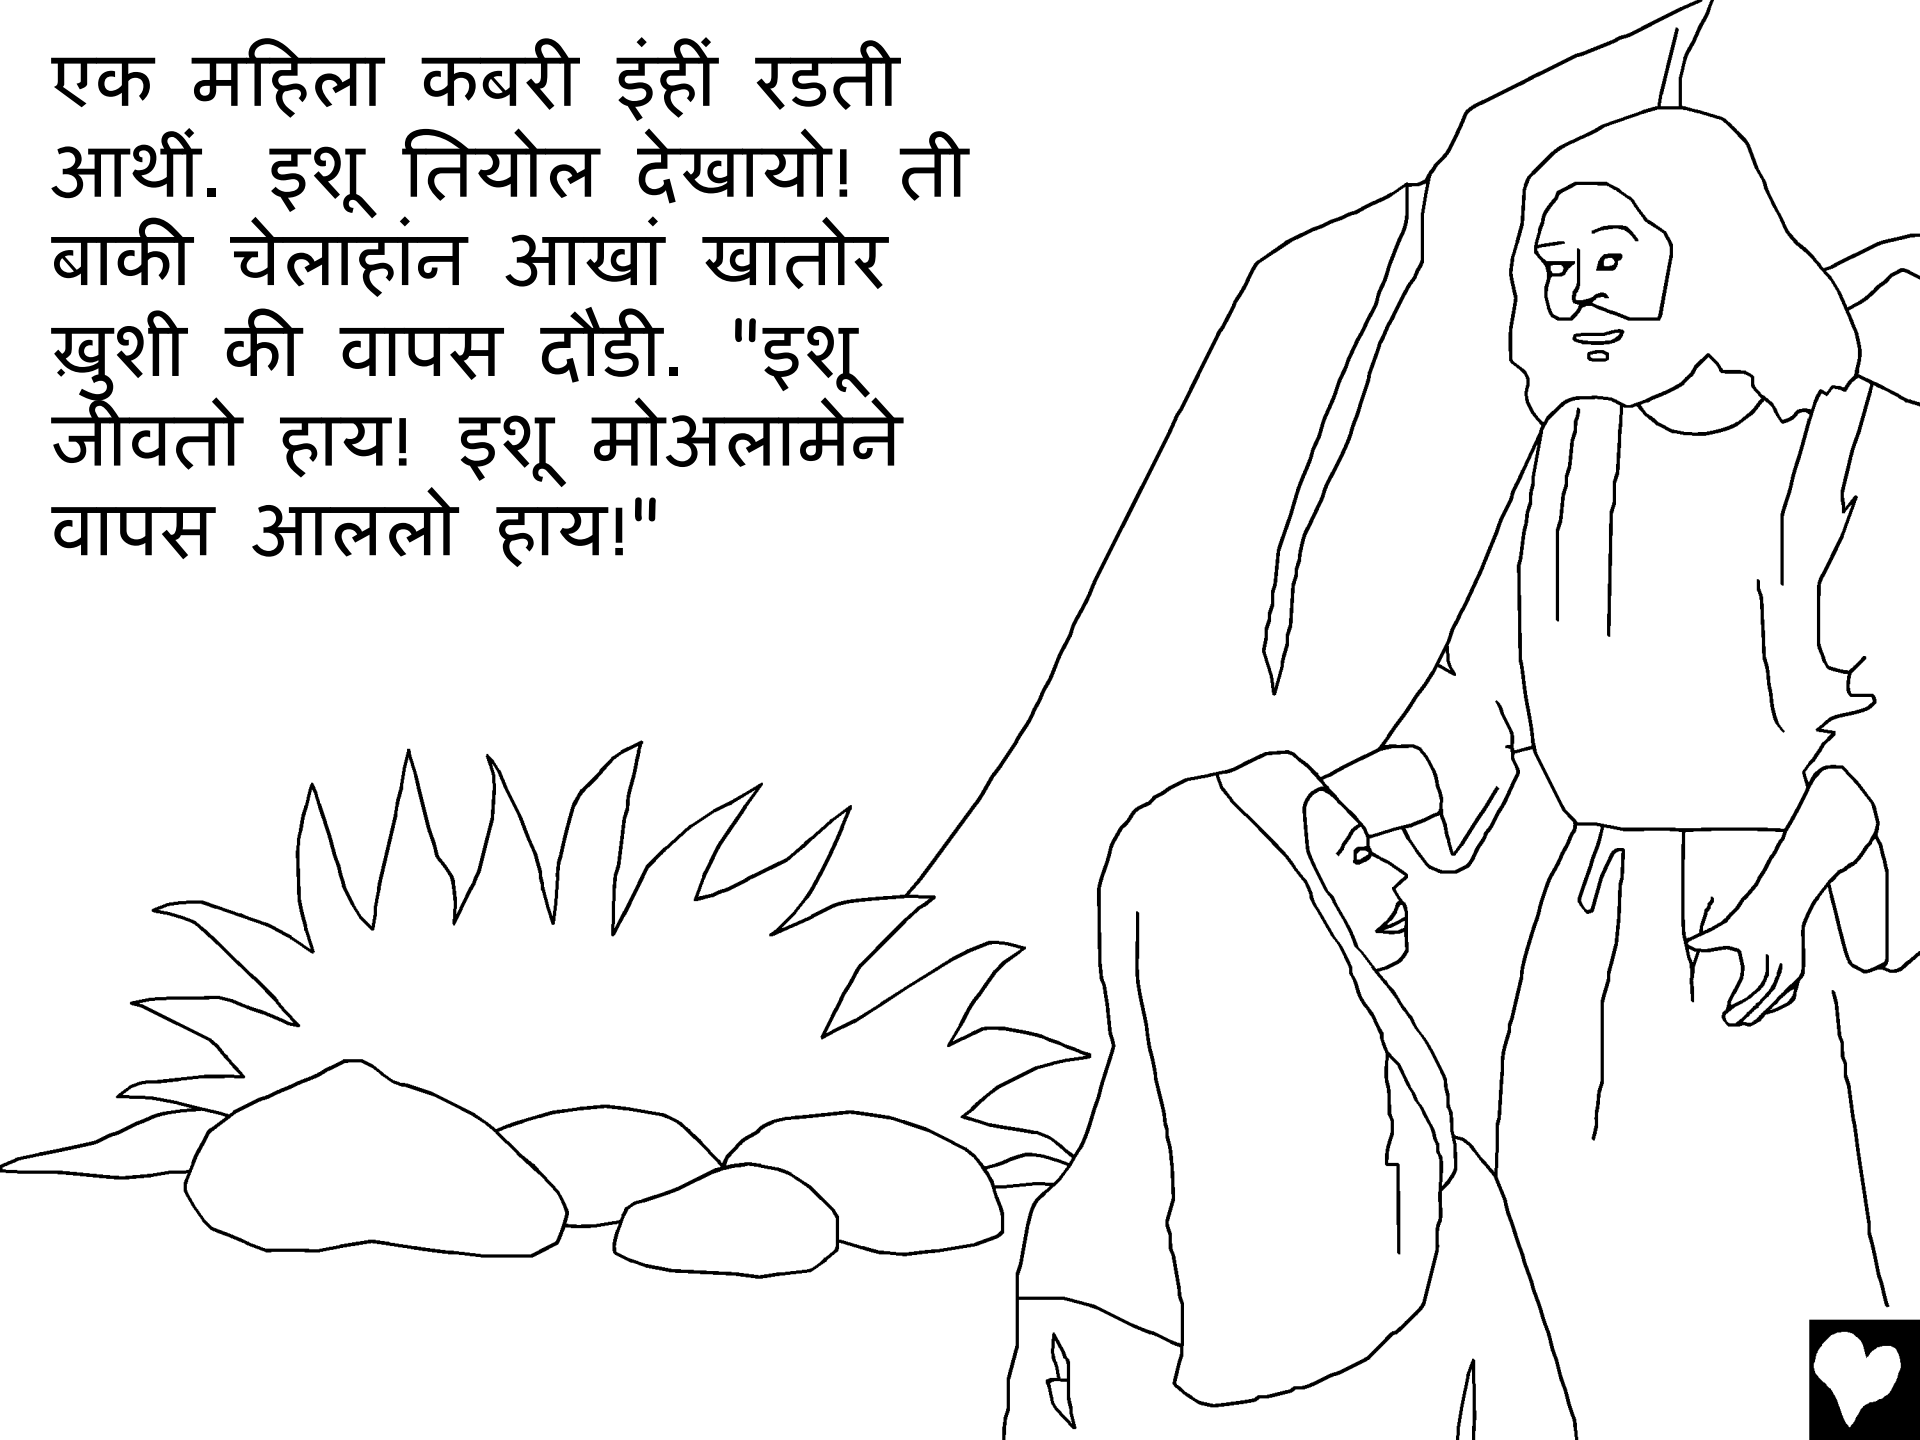 एक महिला कबरी इंहीं रडती
आथीं. इशू तियोल देखायो! ती
बाकी चेलाहांन आखां खातोर
ख़ुशी की वापस दौडी. "इशू
जीवतो हाय! इशू मोअलामेने
वापस आललो हाय!"